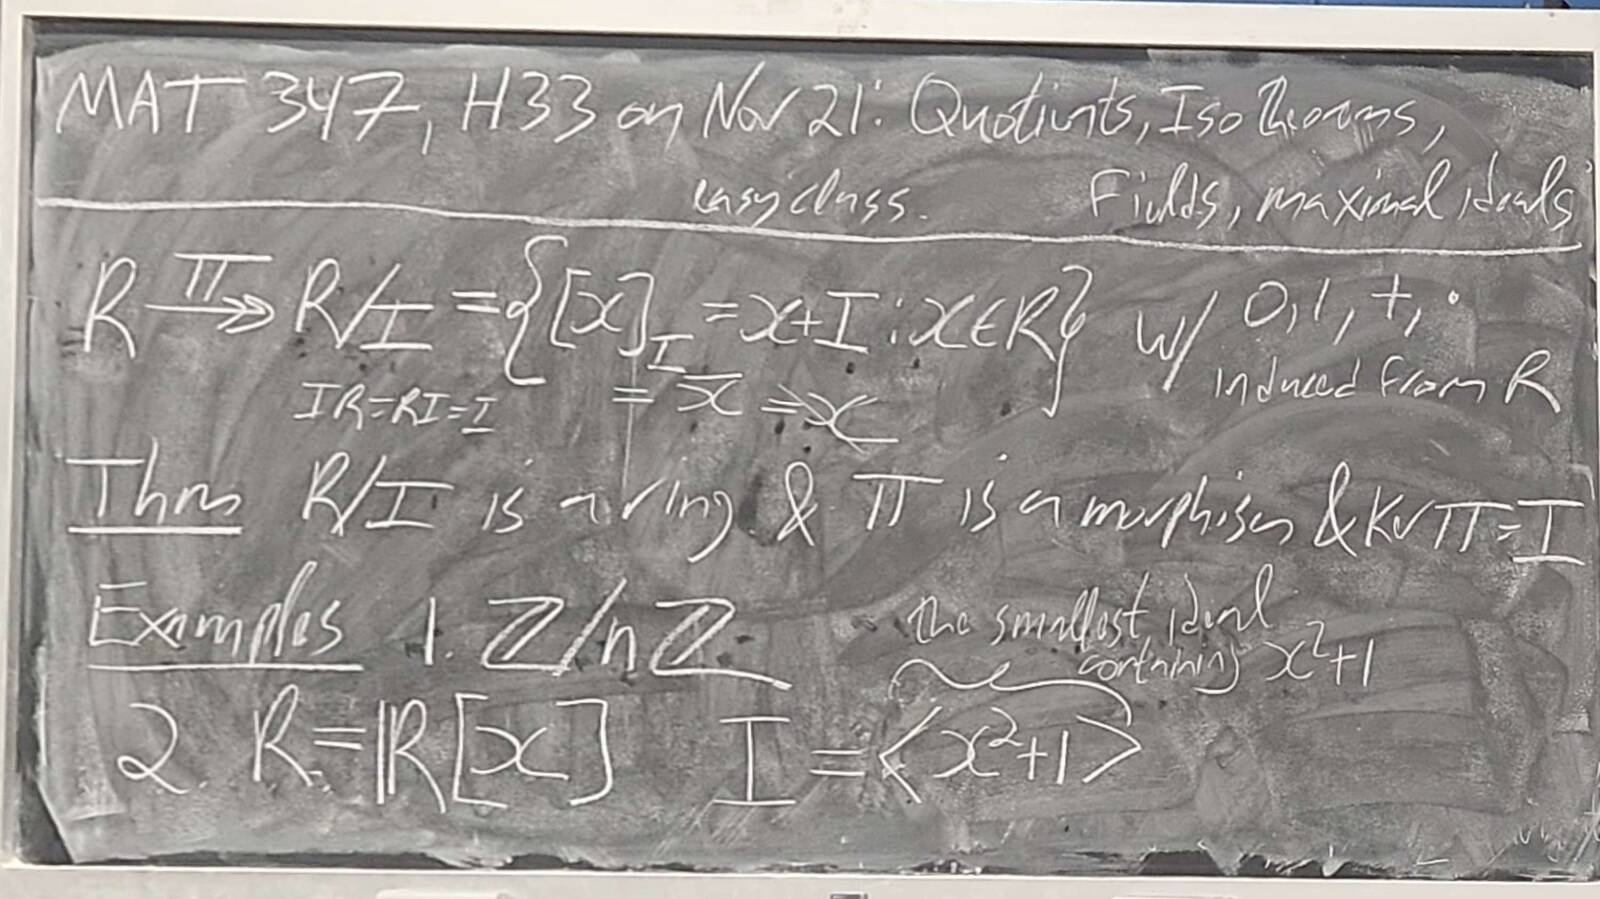 MAT 347, H33 on Nov 21: Quotients, Iso theorems,
easy class. Fields, maximal ideals
R π↠ R/I = {[x]_I = x+I : x∈R} w/ 0, 1, +, ·
IR=RI=I = x̄ = x induced from R
Thm R/I is a ring & π is a morphism & ker π = I
Examples 1. ℤ/nℤ the smallest ideal
containing x²+1
2. R = ℝ[x] I = <x²+1>